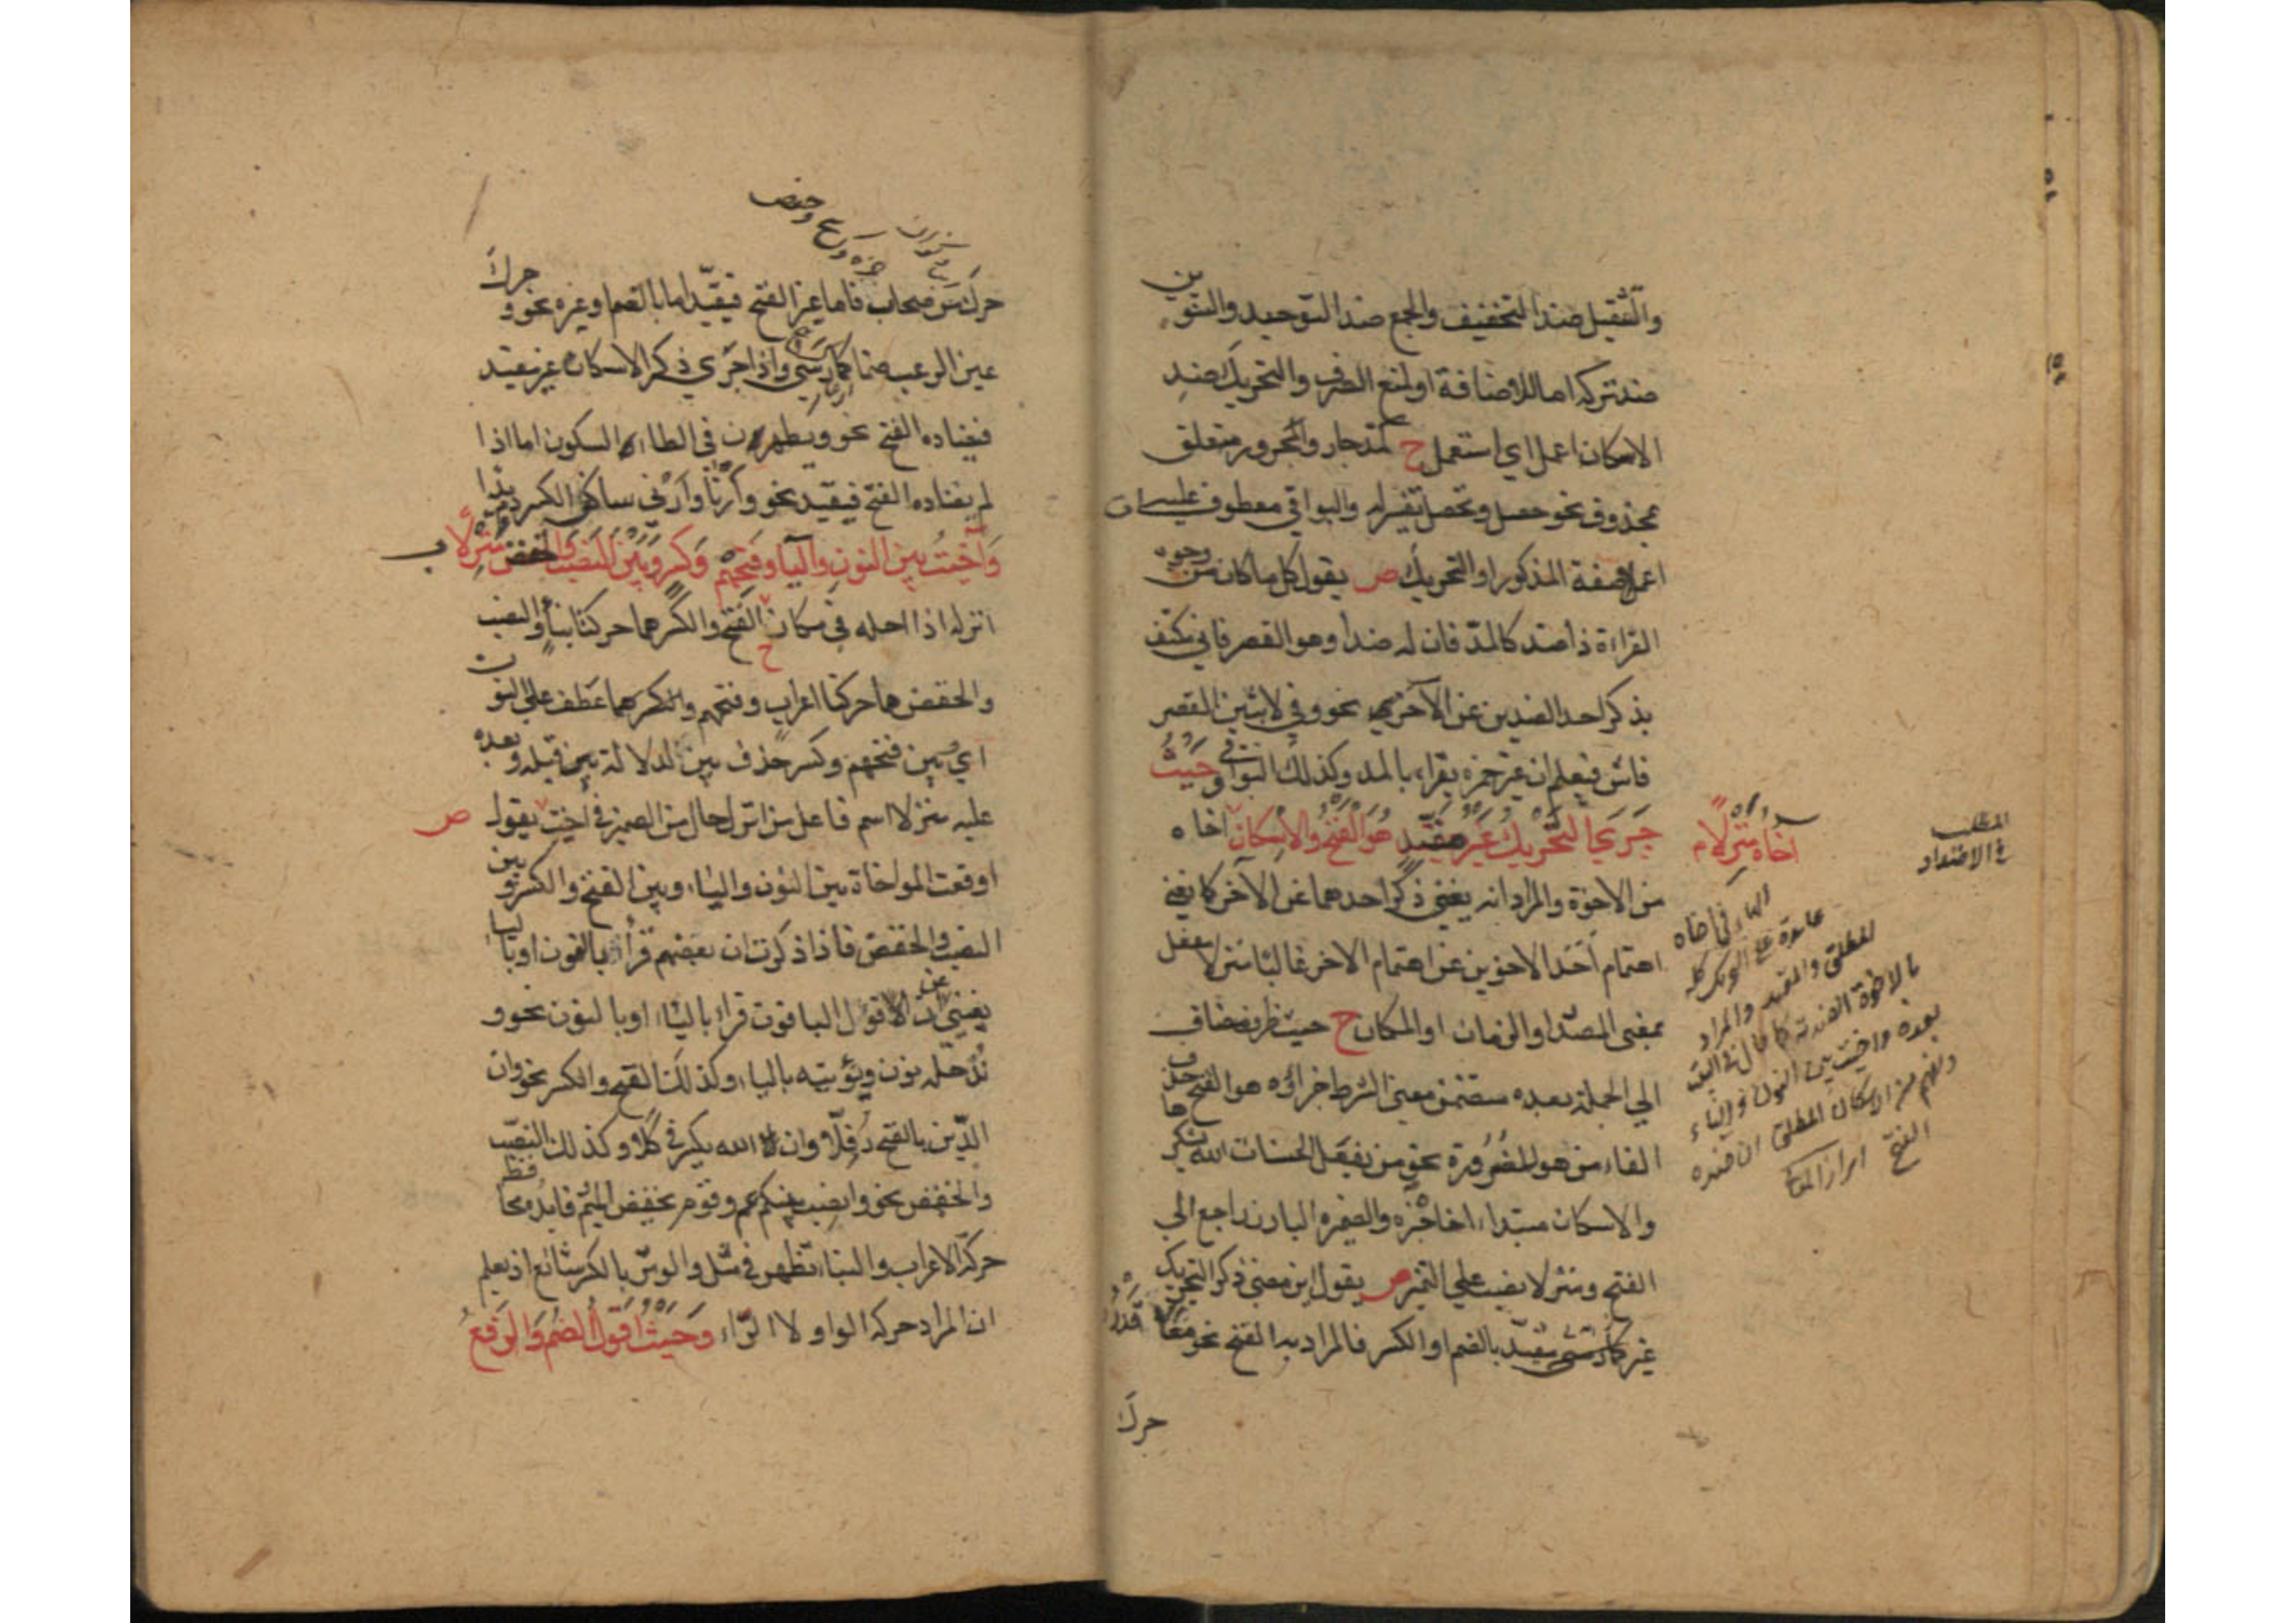 والتثقيل ضد التخفيف والجمع ضد التوحيد والتنوين
ضد تركه اما للاضافة او لمنع الصرف والتحريك ضد
الاسكان اعمل اي استعمل ح كمد جار والمجرور متعلق
بمحذوف نحو حصل وتحصل تفسر له والبواقي معطوفات عليه
اعملا صفة المذكور او التحريك ص يقول كل ما كان من وجوه
القراءة ذا ضد كالمد فان له ضدا وهو القصر فاني نكتف
بذكر احد الضدين عن الآخر نحو وفي لابثين القصر
فاش فيعلم ان غير حمزه يقراء بالمد وكذلك البواقي وَحَيْثُ
جَرَى التَّحْرِيكُ غَيْرَ مُقَيَّدٍ هُوَ الْفَتْحُ وَالْإِسْكَانُ اخاه
آخَاهُ مَنْزِلًا م
من الاخوة والمراد انه يغني ذكر احدهما عن الآخر كما يغني
اهتمام اَحَد الاخوين عن اهتمام الاخر غالبا منزلا مفعل
بمعنى المصدر او الزمان او المكان ح حيث ظرف مضاف
الي الجملة بعده متضمن معنى الشرط جزاؤه هو الفتح حذف
الفاء من هو للضرورة نحو من يفعل الحسنات الله يشكرها
والاسكان مبتداء اخاه خبره والضمير البارز راجع الي
الفتح ومنزلا نصب علي التميز ص يقول اين معنى ذكر التحريك
غير مقيد بالضم او الكسر فالمراد به الفتح نحو معا قَدْرُ
حرك
المطلب
في الاضداد
الهاء في اخاه
عائدة على التحريك كله
المطلق والمقيد والمراد
بالاخوة الضدية كما قال في البيت
بعده واخيت بين النون والياء
وفهم من الاسكان المطلق ان ضده
الفتح ابراز المعاني
وحفص
حرك من صحاب فاما غير الفتح فيقيد اما بالضم او غيره نحو وحرك
عين الرعب ضما كما رسى واذا جرى ذكر الاسكان غير مقيد
فيضاده الفتح نحو ويطهرن في الطاء السكون اما اذا
لم يضاده الفتح فيقيد نحو وأرنا وأرني ساكني الكسر دم يدا
وَآخَيْتُ بَيْنَ النُّونِ وَالْيَا وَفَتْحِهِمْ وَكَسْرٍ وَبَيْنَ النَّصْبِ وَالْخَفْضِ مُنْزِلًا ب
انزله اذا احله في مكان ح الفتح والكسر هما حركتا بناء والنصب
والخفض هما حركتا اعراب وفتحهم وكسر هما عطف علي النون
اي بين فتحهم وكسر حذف بين لدلالة بين قبله وبعده
عليه منزلا اسم فاعل من انزل حال من الضمير في اخيت يقول ص
اوقعت المواخاة بين النون والياء وبين الفتح والكسر وبين
النصب والخفض فاذا ذكرت ان بعضهم قرأ بالنون او بالياء
يغني عن ان اقول الباقون قراء بالياء او بالنون نحو و
نُدخله نون ويؤتيه بالياء وكذلك الفتح والكسر نحو وان
الدّين بالفتح رفلا وان الله يكسر في كلا وكذلك النصب
والخفض نحو وانصب بينكم عم وقوم بخفض الميم فايدُ محافظ
حركة الاعراب والبناء تظهر في مثل والوتر بالكسر شائع اذ يعلم
ان المراد حركة الواو لا الرّاء وَحَيْثُ أَقُولُ الضَّمُّ وَالرَّفْعُ